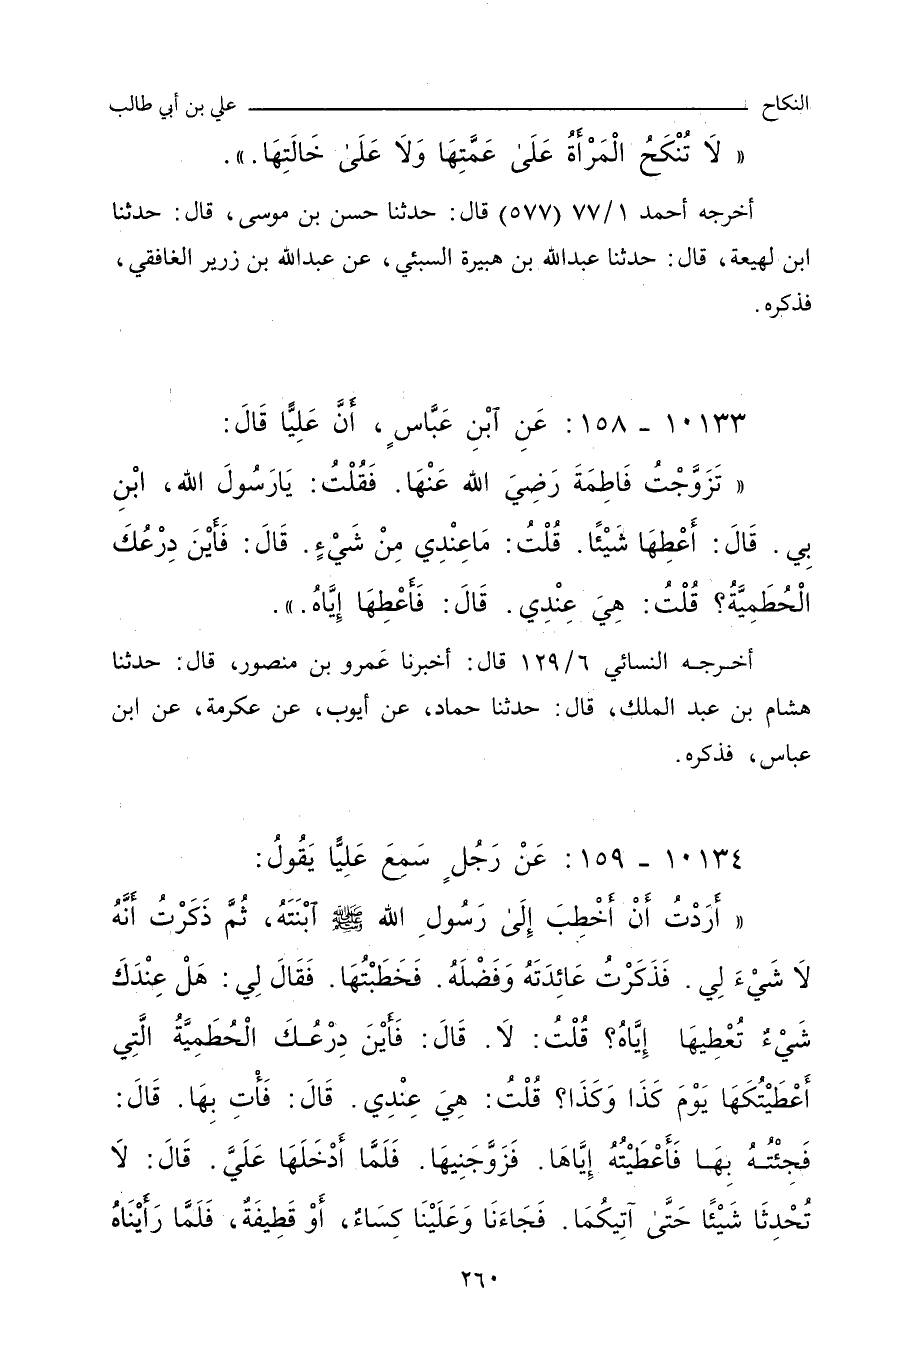 النكاح ــــــــــــــــــــ علي بن أبي طالب
« لَا تُنْكَحُ الْمَرْأَةُ عَلَىٰ عَمَّتِهَا وَلَا عَلَىٰ خَالَتِهَا. ».
أخرجه أحمد ٧٧/١ (٥٧٧) قال: حدثنا حسن بن موسى، قال: حدثنا
ابن لهيعة، قال: حدثنا عبدالله بن هبيرة السبئي، عن عبدالله بن زرير الغافقي،
فذكره.
١٠١٣٣ - ١٥٨: عَنِ آبْنِ عَبَّاسٍ، أَنَّ عَلِيًّا قَالَ:
« تَزَوَّجْتُ فَاطِمَةَ رَضِيَ الله عَنْهَا. فَقُلْتُ: يَارَسُولَ الله، ابْنِ
بِي. قَالَ: أَعْطِهَا شَيْئًا. قُلْتُ: مَاعِنْدِي مِنْ شَيْءٍ. قَالَ: فَأَيْنَ دِرْعُكَ
الْحُطَمِيَّةُ؟ قُلْتُ: هِيَ عِنْدِي. قَالَ: فَأَعْطِهَا إِيَّاهُ. ».
أخرجه النسائي ١٢٩/٦ قال: أخبرنا عَمرو بن منصور، قال: حدثنا
هشام بن عبد الملك، قال: حدثنا حماد، عن أيوب، عن عكرمة، عن ابن
عباس، فذكره.
١٠١٣٤ - ١٥٩: عَنْ رَجُلٍ سَمِعَ عَلِيًّا يَقُولُ:
« أَرَدْتُ أَنْ أَخْطِبَ إِلَىٰ رَسُولِ الله ﷺ آبْنَتَهُ، ثُمَّ ذَكَرْتُ أَنَّهُ
لَا شَيْءَ لِي. فَذَكَرْتُ عَائِدَتَهُ وَفَضْلَهُ. فَخَطَبْتُهَا. فَقَالَ لِي: هَلْ عِنْدَكَ
شَيْءٌ تُعْطِيهَا إِيَّاهُ؟ قُلْتُ: لَا. قَالَ: فَأَيْنَ دِرْعُكَ الْحُطَمِيَّةُ الَّتِي
أَعْطَيْتُكَهَا يَوْمَ كَذَا وَكَذَا؟ قُلْتُ: هِيَ عِنْدِي. قَالَ: فَأْتِ بِهَا. قَالَ:
فَجِئْتُهُ بِهَا فَأَعْطَيْتُهُ إِيَّاهَا. فَزَوَّجَنِيهَا. فَلَمَّا أَدْخَلَهَا عَلَيَّ. قَالَ: لَا
تُحْدِثَا شَيْئًا حَتَّىٰ آتِيكُمَا. فَجَاءَنَا وَعَلَيْنَا كِسَاءٌ، أَوْ قَطِيفَةٌ، فَلَمَّا رَأَيْنَاهُ
٢٦٠